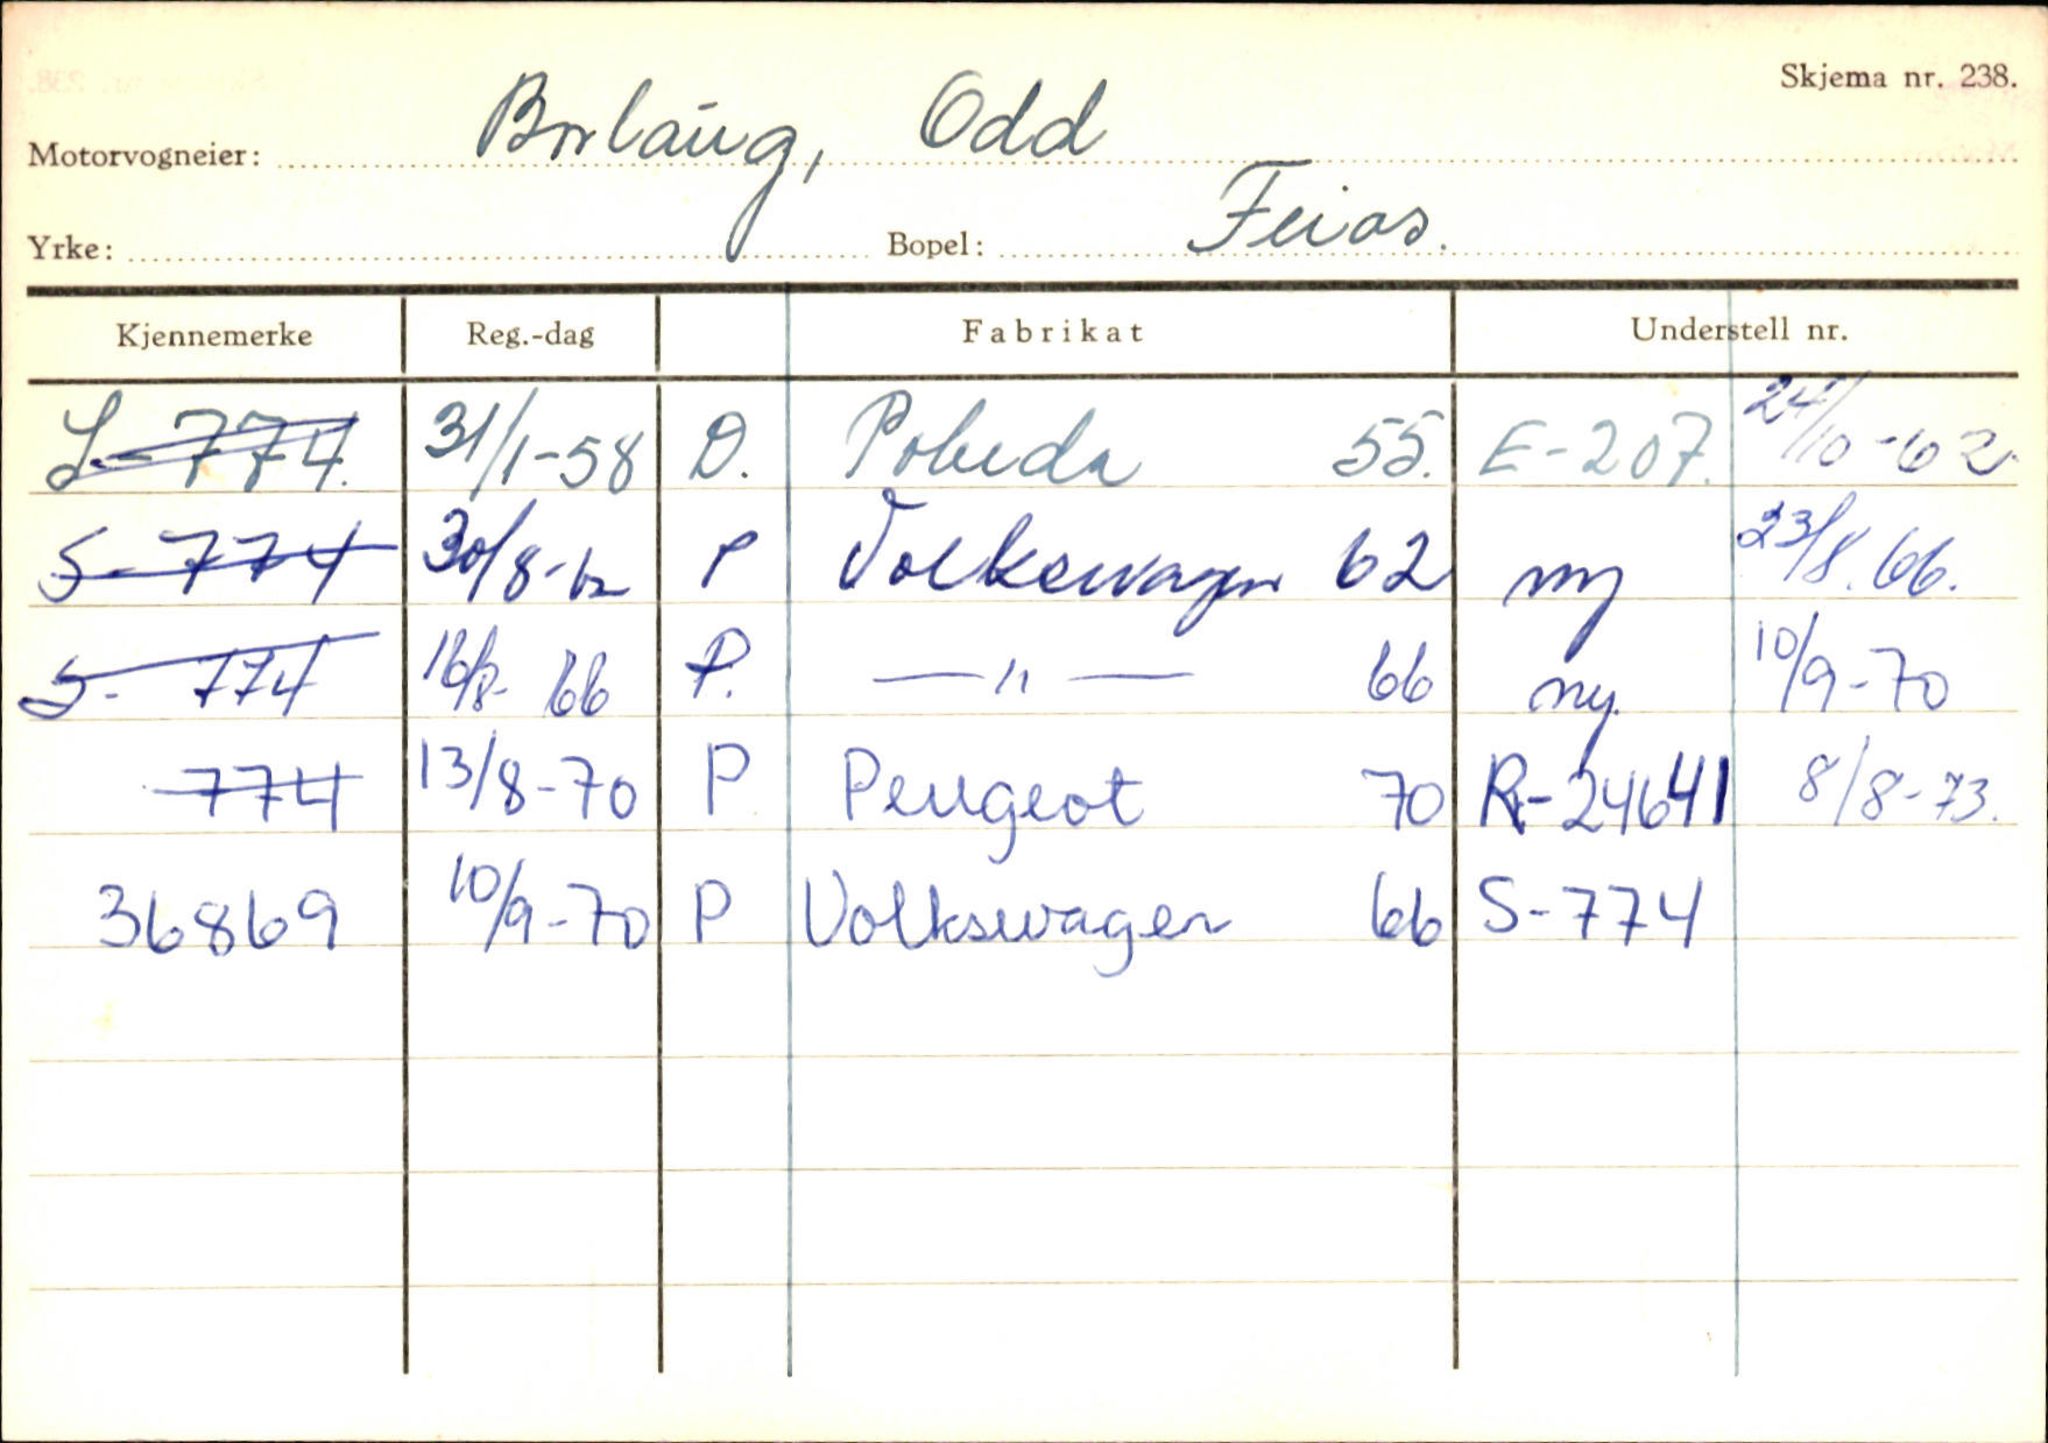 Skjema nr. 238.
Motorvogneier: Borlaug, Odd
Yrke: Bopel: Feios.
Kjennemerke Reg.-dag Fabrikat Understell nr.
S-774. 31/1-58 D. Pobeda 55. E-207. 24/10-62
S-774 30/8-62 P Volkswagen 62 ny 23/8.66.
S-774 16/8-66 P. —"— 66 ny. 10/9-70
774 13/8-70 P Peugeot 70 R-24641 8/8-73.
36869 10/9-70 P Volkswagen 66 S-774